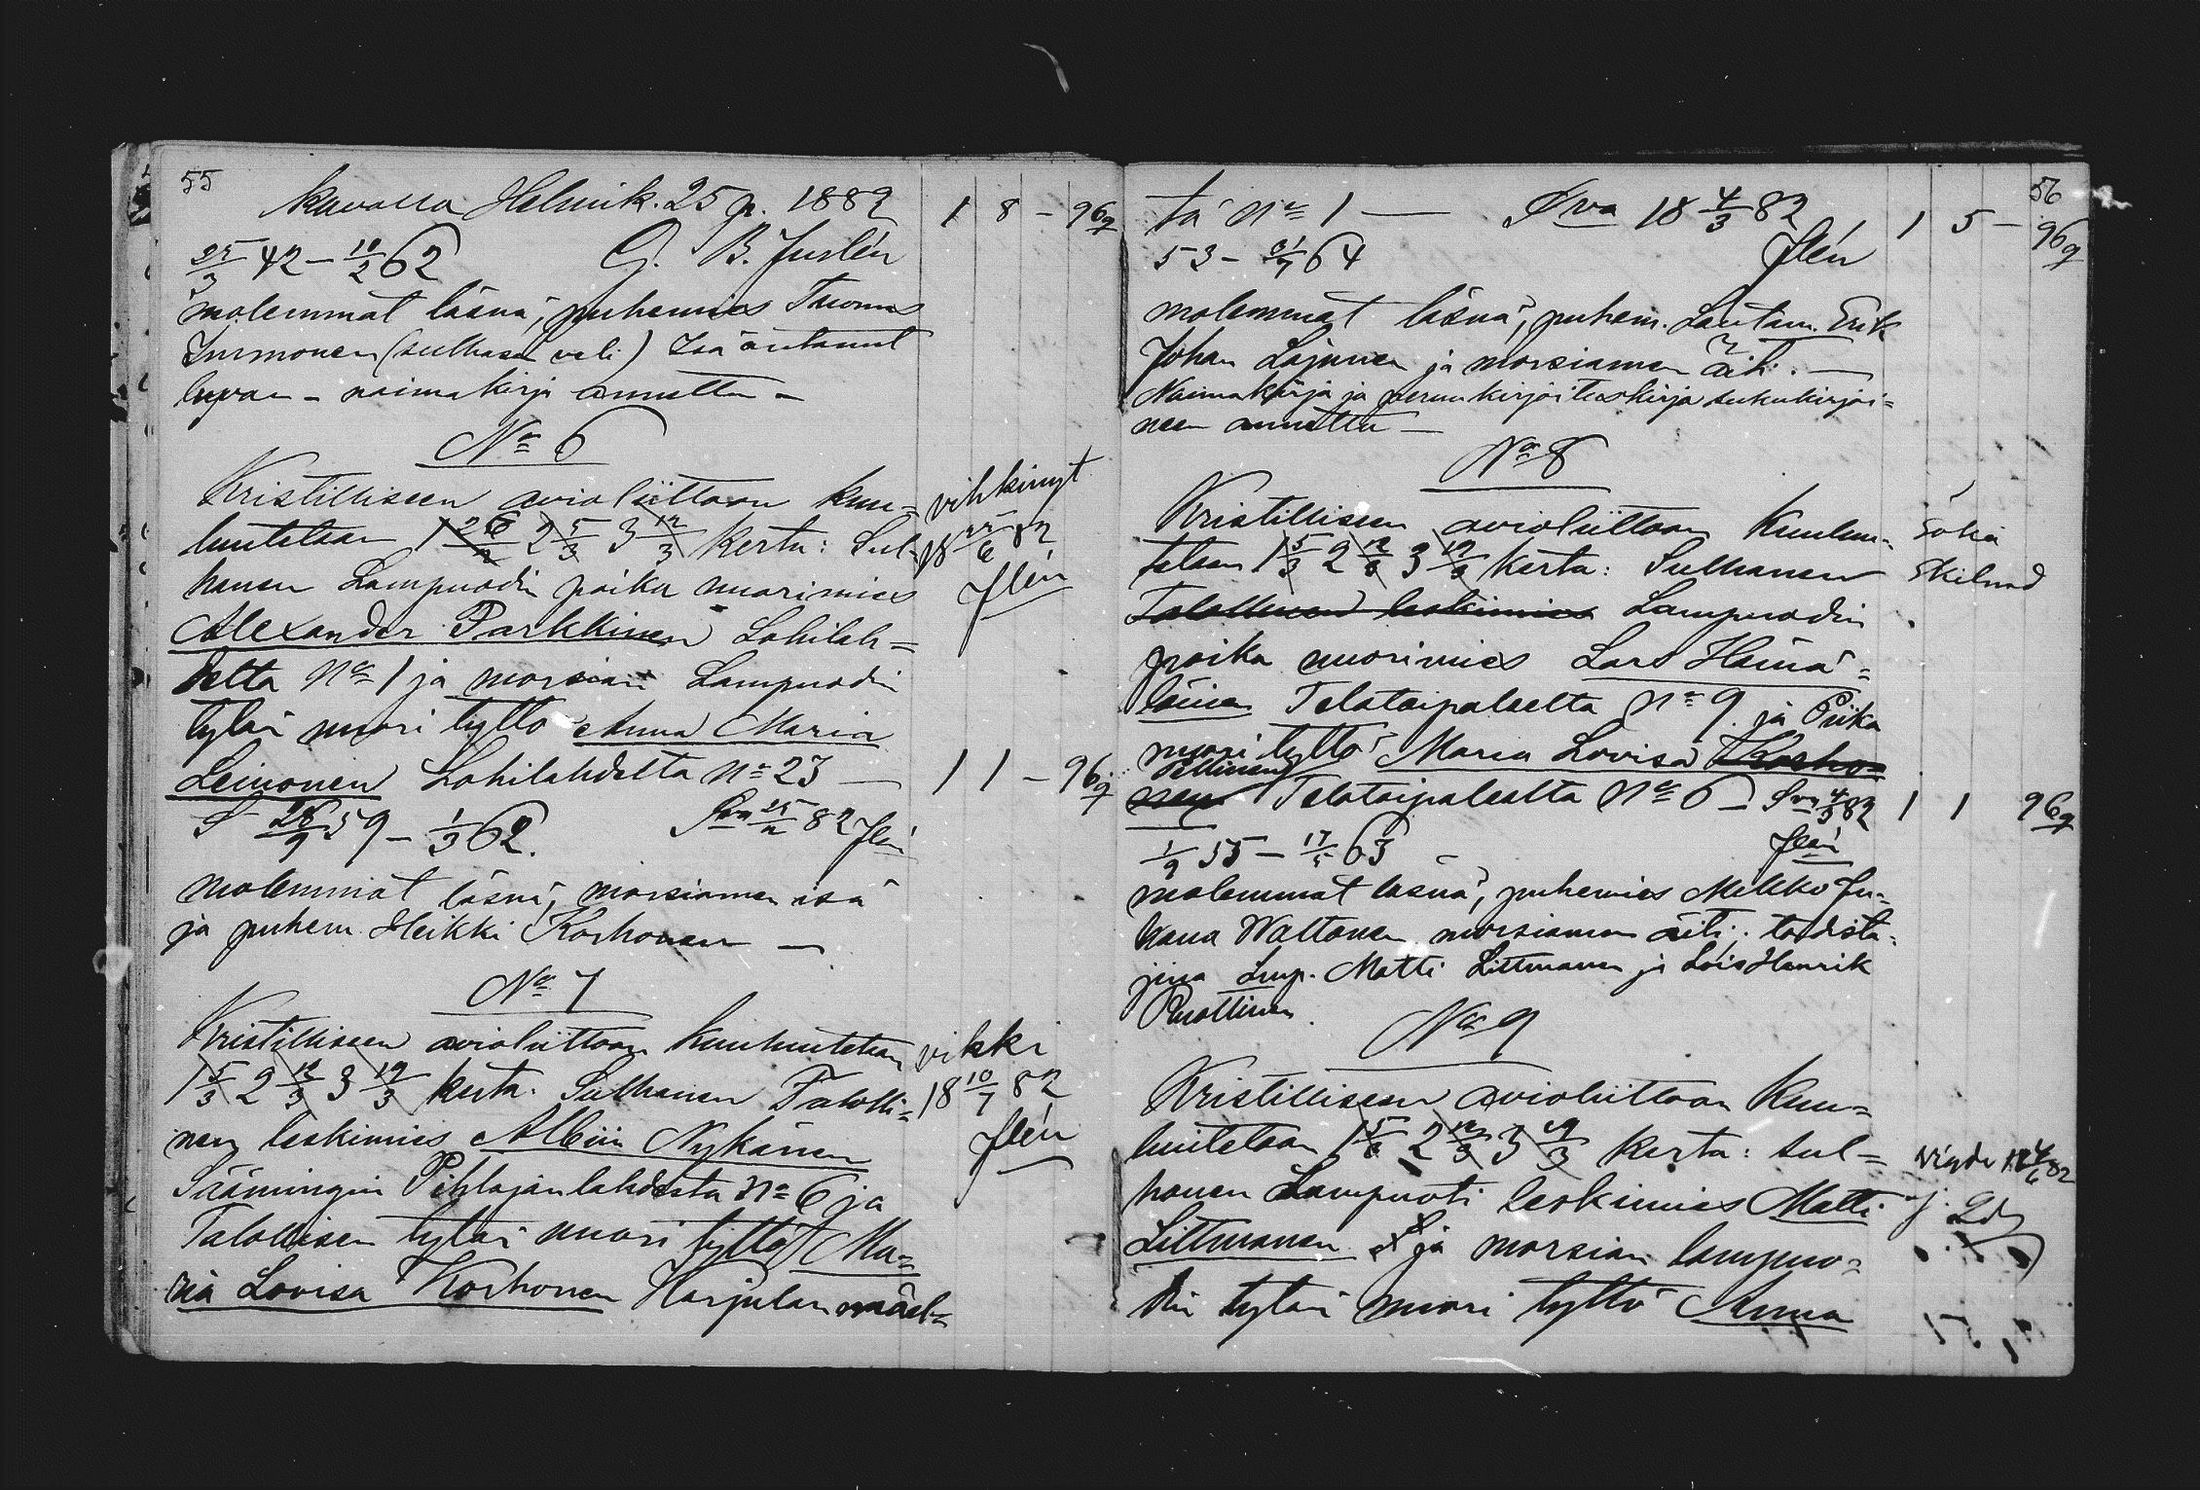 55
kuvassa Helmik. 25 p. 1882
1 8 - 96 q
25/3 42 - 10/2 62 G. B. Juslén
molemmat läsnä, puhemies Tuomas
Immonen (sulhasen veli) Isä antanut
luvan - naimakirja annettu -
No 6
Kristilliseen avioliittoon kuu=
lutetaan 1 26/2 2 5/3 3 12/3 kerta: Sul=
hanen Lampuodin poika nuorimies
Alexander Parkkinen Lohilah=
delta No 1 ja morsian Lampuodin
tytär nuori tyttö Anna Maria
Leinonen Lohilahdelta No 23 —
28/9 59 - 1/3 62. Sva 25/2 82 Jlén
molemmat läsnä, morsiamen isä
ja puhem. Heikki Korhonen —
vihkinyt
18 25/6 82
Jlén
1 1 - 96 q
No 7
Kristilliseen avioliittoon kuulutetaan
1 5/3 2 12/3 3 19/3 kerta: Sulhanen Talolli=
nen leskimies Albin Nykänen
Säämingin Pihlajanlahdesta No 6 ja
Talollisen tytär nuori tyttö Ma=
ria Lovisa Korhonen Harjulanmäel=
vihki
18 10/7 82
Jlén
56
tä No 1 — Sva 18 4/3 82
1 5 - 96 q
53 - 21/7 64 Jlén
molemmat läsnä, puhem. Lautam. Erik
Johan Lajunen ja morsiamen äiti. —
Naimakirja ja perunkirjoituskirja sukukirjoi=
neen annettu —
No 8
Kristilliseen avioliittoon kuulu=
tetaan 1 5/3 2 12/3 3 19/3 kerta: Sulhanen
Talollinen leskimies Lampuodin
poika nuorimies Lars Heinä=
läinen Telataipaleelta No 9 ja Piika
nuori tyttö Maria Lovisa Korho=
nen Telataipaleelta No 6 — Sva 4/3 82
1 1 96 q
1/9 55 - 17/5 63 Jlén
molemmat läsnä, puhemies Mikko Ju=
hana Wattanen morsiamen äiti. todista=
jina Lmp. Matti Littmanen ja Lois Henrik
No 9
Kristilliseen avioliittoon kuu=
lutetaan 1 5/3 2 12/3 3 19/3 kerta: sul=
hanen Lampuoti leskimies Matti
Littmanen ja morsian lampuo=
din tytär nuori tyttö Anna
Vigde